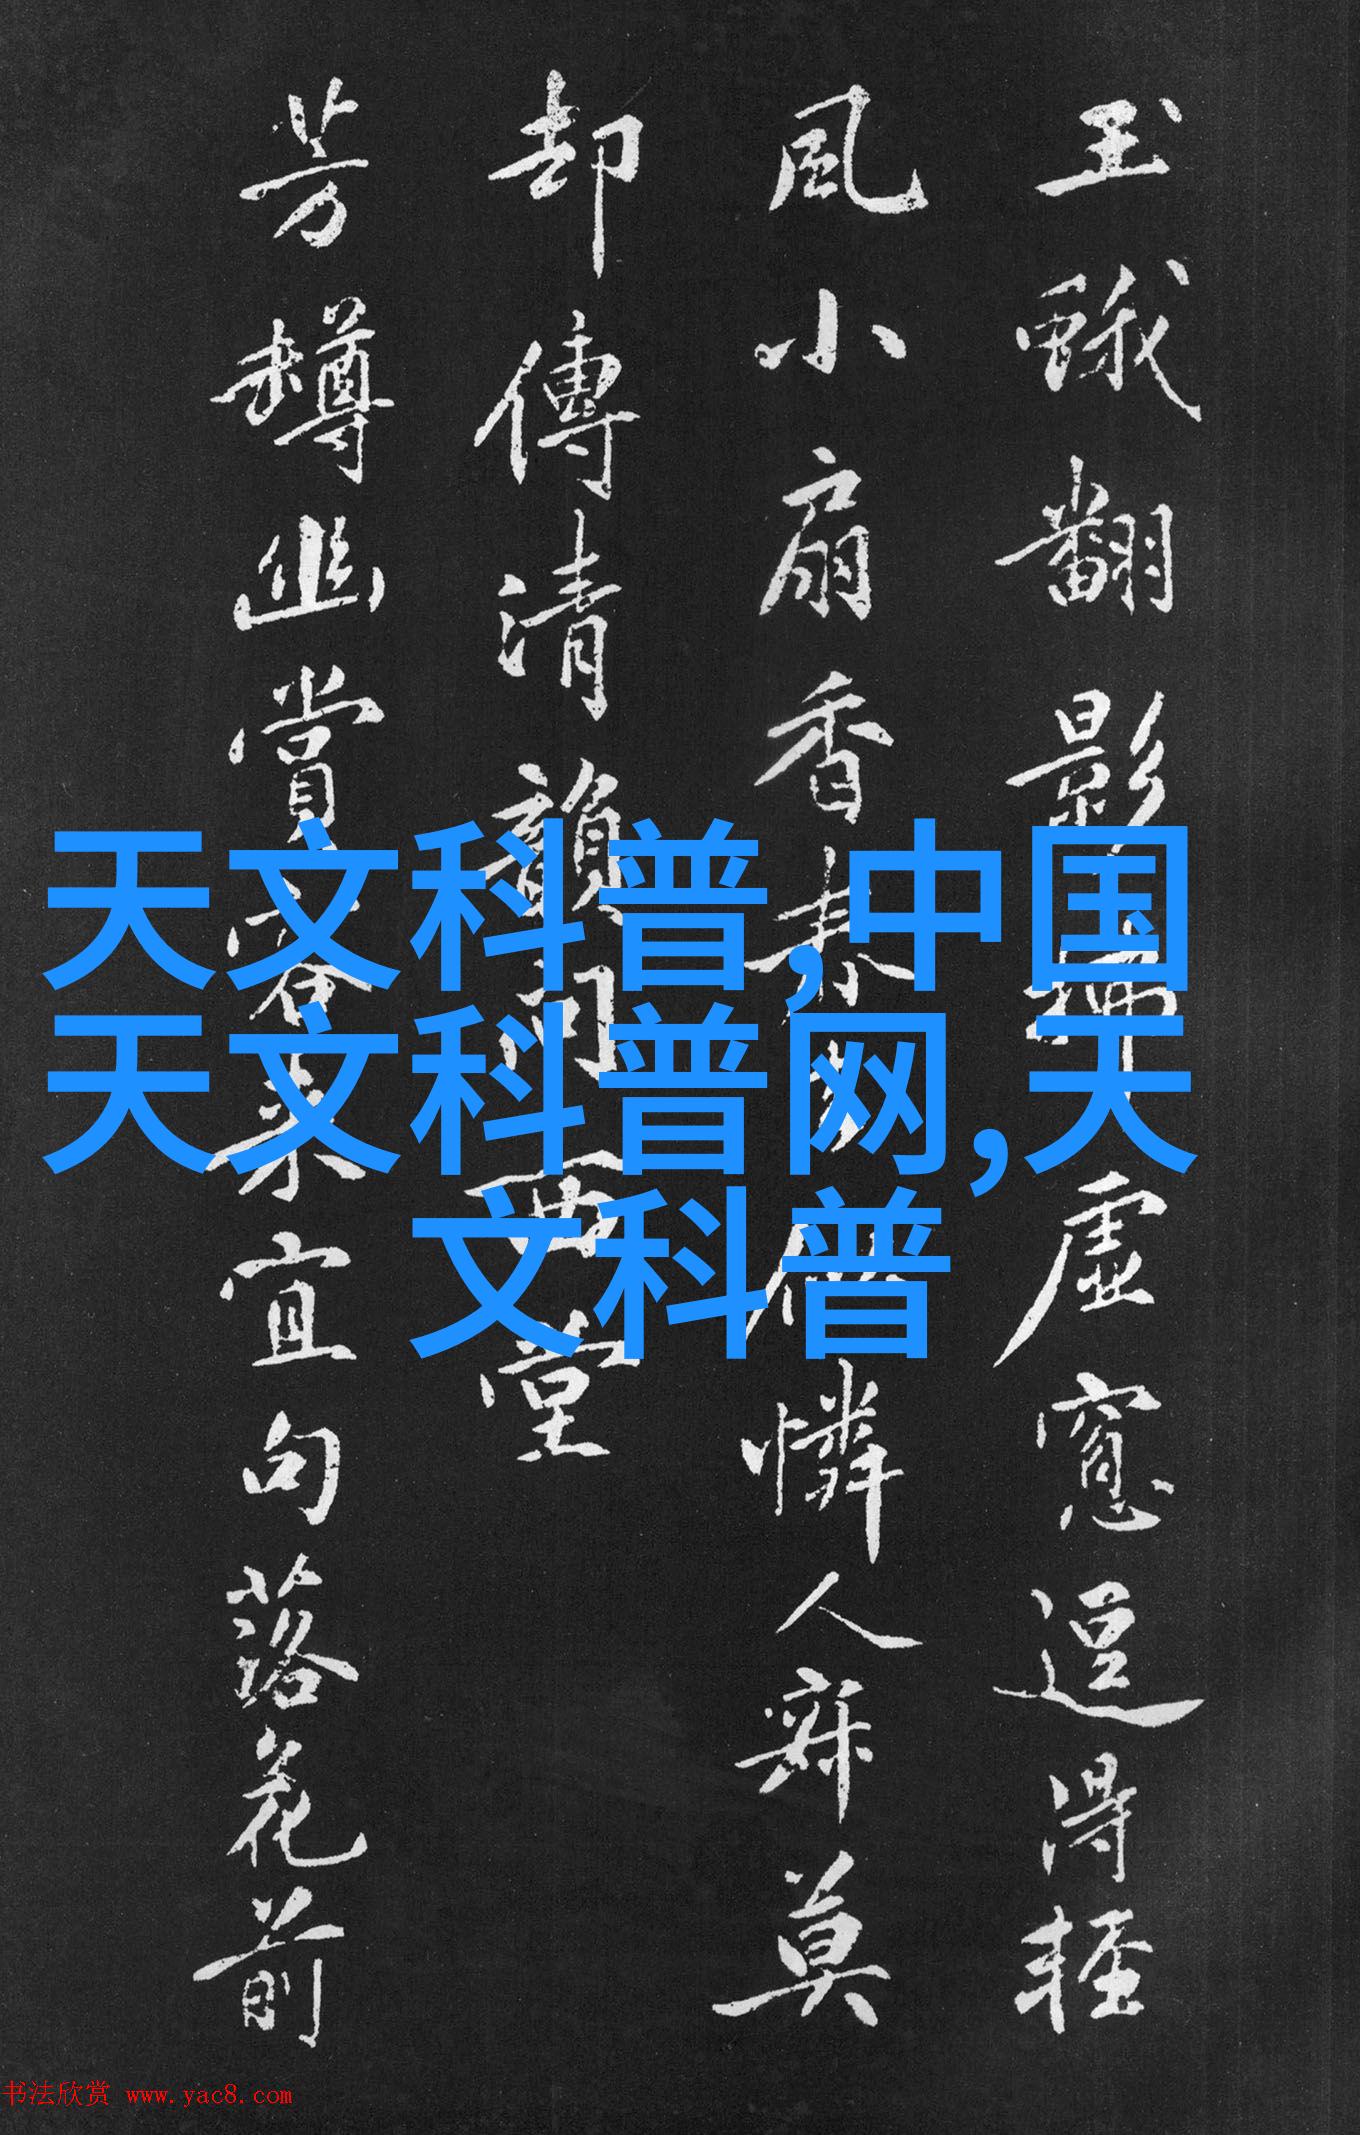 玉蛾翻影
虚窓逗得輕
風小扇香
憐人寐莫
却傳清韻問西堂
芳樽幽賞客來宜句落花前
天文科普,中国
天文科普网,天
文科普
书法欣赏 www.yac8.com